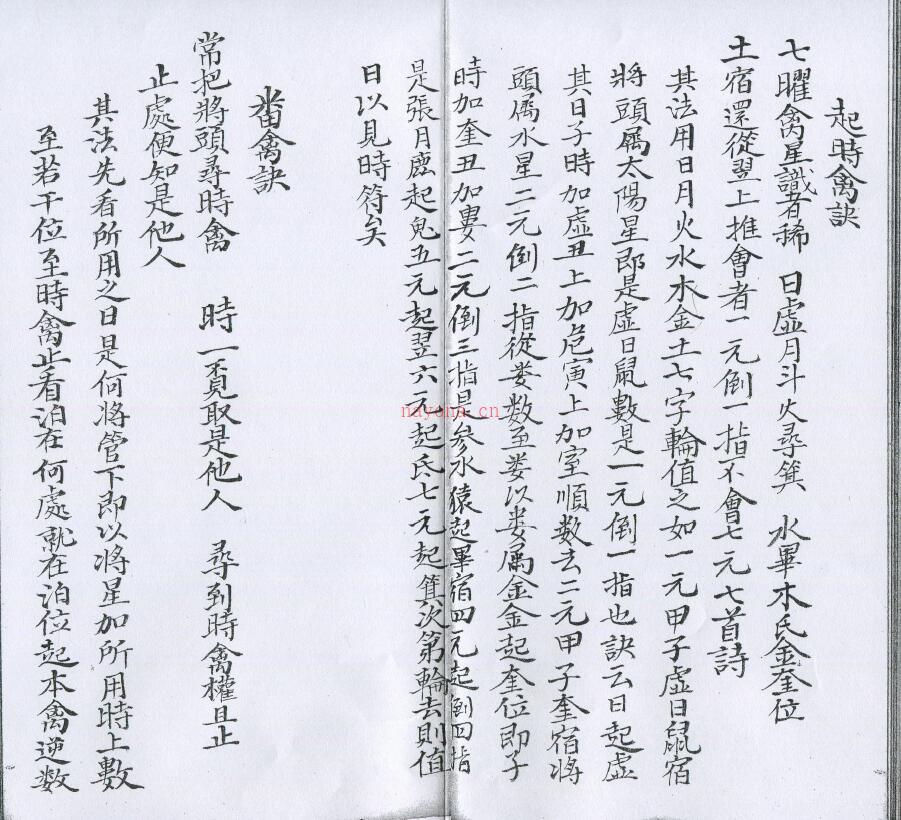 起時禽訣
七曜禽星識者稀 日虛月斗火尋箕 水畢木氐金奎位
土宿還從翌上推會者一元倒一指不會七元七首詩
其法用日月火水木金土七字輪值之如一元甲子虛日鼠宿
將頭屬太陽星即是虛日鼠數是一元倒一指也訣云日起虛
其日子時加虛丑上加危寅上加室順數去二元甲子奎宿將
頭屬水星二元倒二指從娄数至娄以娄属金金起奎位即子
時加奎丑加婁二元倒三指是参水猿起畢宿四元起倒四指
是張月鹿起鬼五元起翌六元起氐七元起箕次第輪去則值
日以見時符矣
畨禽訣
常把將頭尋時禽 時一不見取是他人 尋到時禽權且止
止處便知是他人
其法先看所用之日是何將管下即以將星加所用時上數
至若干位至時禽止看泊在何處就在泊位起本禽逆数
nayona.cn